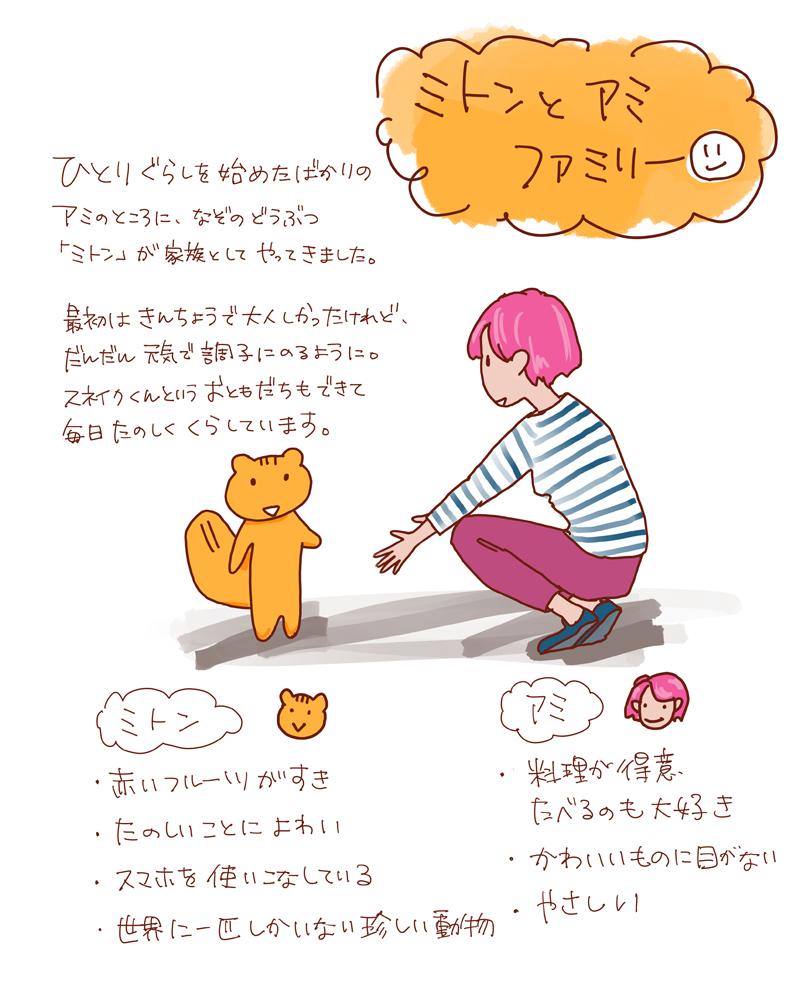 ミトンと アミ
ファミリー
ひとりぐらしを始めたばかりの
アミのところに、なぞのどうぶつ
「ミトン」が家族としてやってきました。
最初はきんちょうで大人しかったけれど、
だんだん元気で調子にのるように。
スネイクくんというおともだちもできて
毎日たのしくくらしています。
ミトン
・赤いフルーツがすき
・たのしいことによわい
・スマホを使いこなしている
・世界に一匹しかいない珍しい動物
アミ
・料理が得意、
たべるのも大好き
・かわいいものに目がない
・やさしい